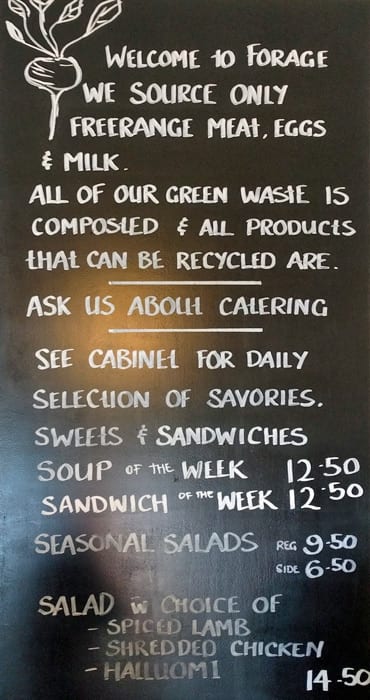 WELCOME to FORAGE
WE SOURCE ONLY
FREERANGE MEAT, EGGS
& MILK.
ALL OF OUR GREEN WASTE IS
COMPOSTED & ALL PRODUCTS
THAT CAN BE RECYCLED ARE.
ASK US ABOUT CATERING
SEE CABINET FOR DAILY
SELECTION OF SAVORIES.
SWEETS & SANDWICHES
SOUP OF THE WEEK 12.50
SANDWICH OF THE WEEK 12.50
SEASONAL SALADS REG 9.50
SIDE 6.50
SALAD W CHOICE OF
- SPICED LAMB
- SHREDDED CHICKEN
- HALLUOMI 14.50